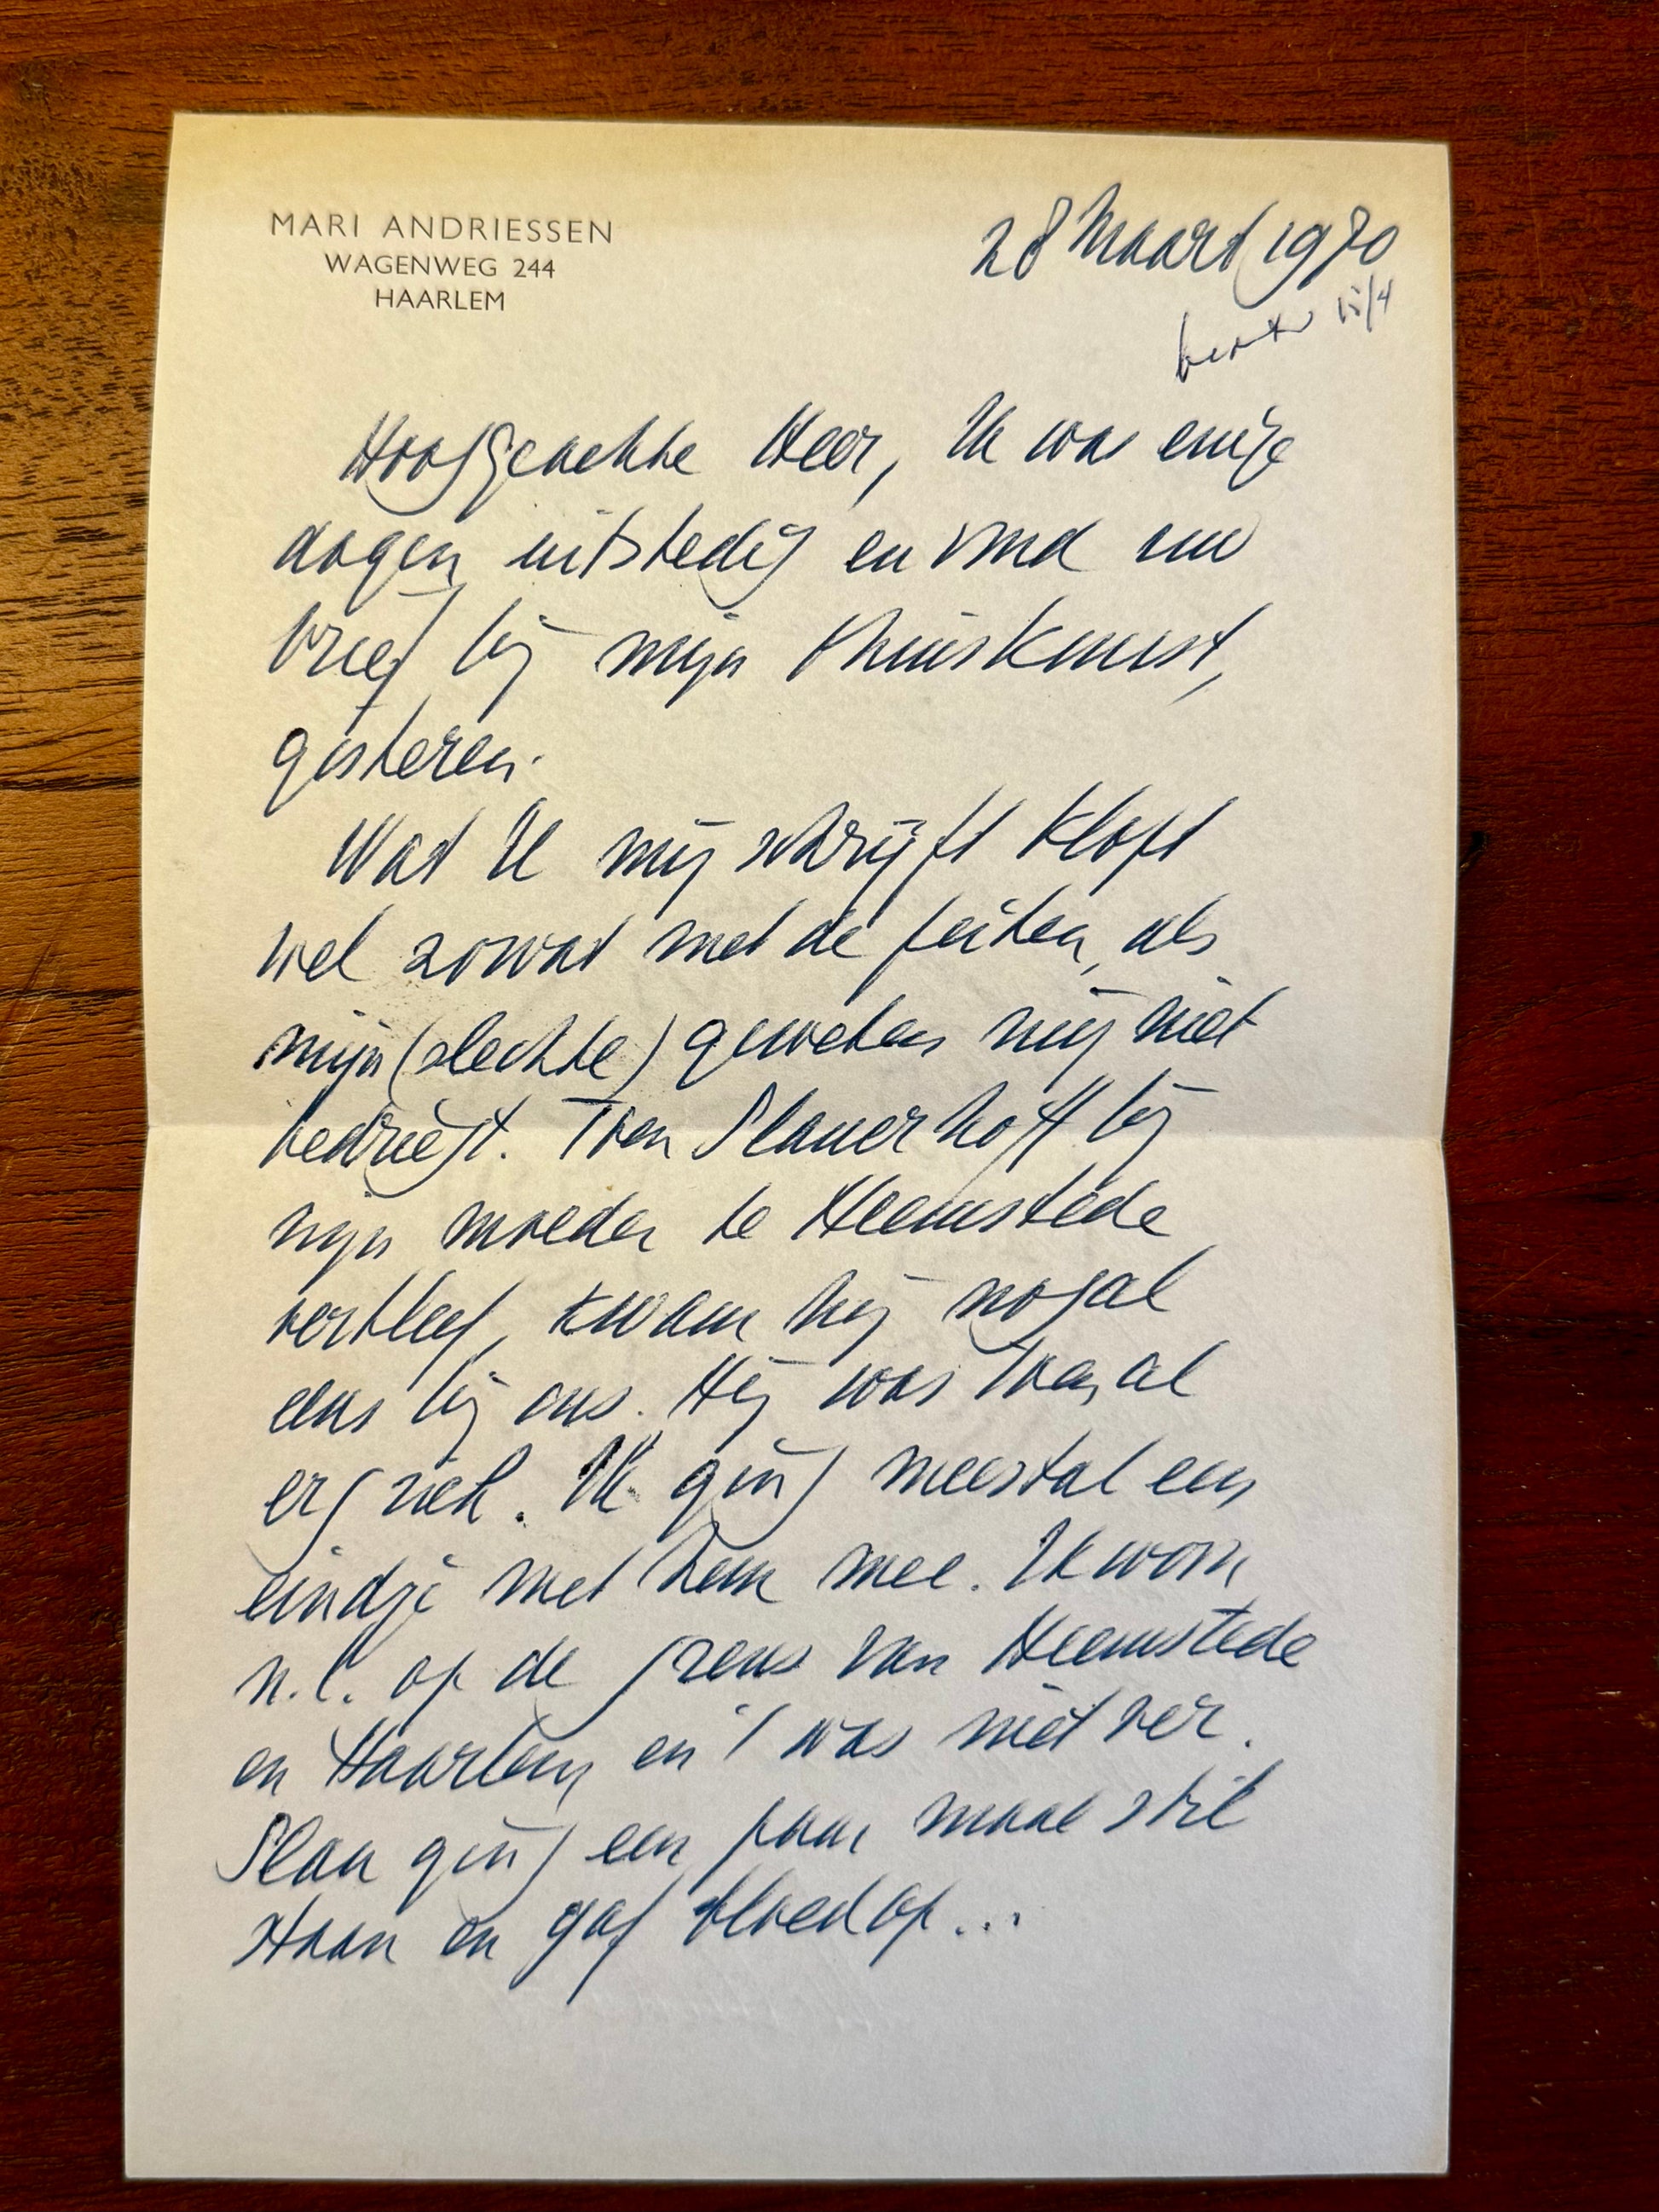 MARI ANDRIESSEN
WAGENWEG 244
HAARLEM
28 Maart 1970
15/4
Hooggeachte Heer, Ik was enige
dagen uitstedig en vind uw
brief bij mijn thuiskomst,
gisteren.
Wat U mij schrijft klopt
wel zowat met de feiten, als
mijn (slechte) geweten mij niet
bedriegt. Toen Slauerhoff bij
mijn moeder te Heemstede
verbleef, kwam hij nogal
eens bij ons. Hij was toen al
erg ziek. Ik ging meestal een
eindje met hem mee. Ik woon
n.l. op de grens van Heemstede
en Haarlem en 't was niet ver.
Slau ging een paar maal stil
staan en gaf bloed op...